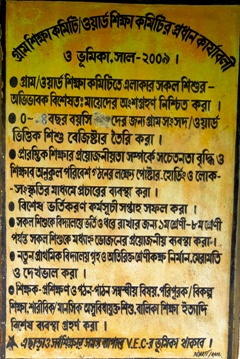 গ্রাম শিক্ষা কমিটি/ওয়ার্ড শিক্ষা কমিটির প্রধান কার্যাবলী
ও ভূমিকা, সাল-২০০৯ ।
● গ্রাম/ওয়ার্ড শিক্ষা কমিটিতে এলাকার সকল শিশুর-
অভিভাবক বিশেষতঃ মায়েদের অংশগ্রহণ নিশ্চিত করা ।
● ০- বছর বয়সি দের জন্য গ্রাম সংসদ/ওয়ার্ড
ভিত্তিক শিশু রেজিষ্টার তৈরি করা ।
● প্রারম্ভিক শিক্ষার প্রয়োজনীয়তা সম্পর্কে সচেতনতা বৃদ্ধি ও
শিক্ষার অনুকুল পরিবেশ গঠনের লক্ষ্যে পোষ্টার, হোর্ডিং ও লোক-
সংস্কৃতির মাধ্যমে প্রচারের ব্যবস্থা করা ।
● বিশেষ ভর্তিকরণ কর্মসূচী সপ্তাহ সফল করা ।
● সকল শিশুকে বিদ্যালয়ে ভর্তি ও ধরে রাখার জন্য ১ম শ্রেণী-৮ম শ্রেণী
পর্যন্ত সকল শিশুকে মধ্যাহ্ন ভোজনের প্রয়োজনীয় ব্যবস্থা করা ।
● নতুন প্রাথমিক বিদ্যালয় গৃহ ও অতিরিক্ত শ্রেণীকক্ষ নির্মান, মেরামতি
ও দেখভাল করা ।
● শিক্ষক-প্রশিক্ষণ ও পঠন-পাঠন সম্বন্ধীয় বিষয়, পরিপূরক/বিকল্প
শিক্ষা, শারীরিক/মানসিক অসুবিধাযুক্ত শিশু, বালিকা শিক্ষা ইত্যাদি
বিশেষ ব্যবস্থা গ্রহণ করা ।
এছাড়াও সর্বশিক্ষার সমস্ত ব্যাপারে V.E.C-র ভূমিকা থাকবে ।